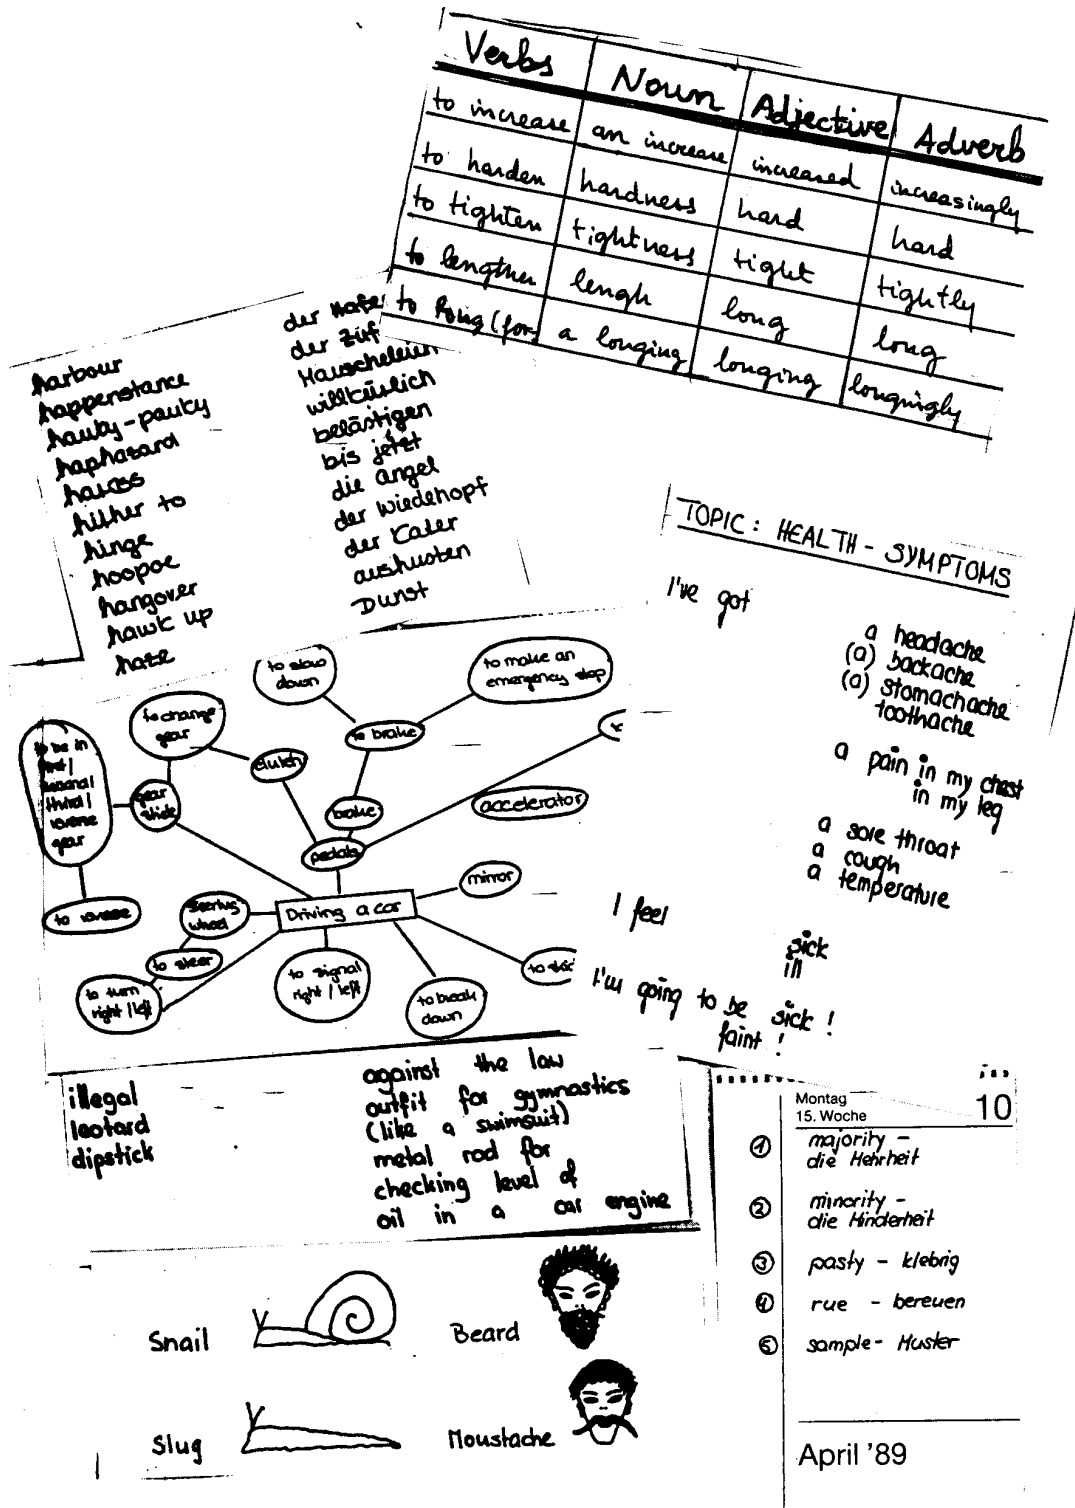 Verbs Noun Adjective Adverb
to increase an increase increased increasingly
to harden hardness hard hard
to tighten tightness tight tightly
to lengthen lengh long long
to long (for) a longing longing longingly
harbour
happenstance
hauky-pauky
haphazard
harass
hither to
hinge
hoopoe
hangover
hawk up
haze
der Hafe
der Zuf
Mauscheleien
willkürlich
belästigen
bis jetzt
die Angel
der Wiedehopf
der Kater
aushusten
Dunst
TOPIC: HEALTH - SYMPTOMS
I've got
a headache
(a) backache
(a) stomachache
toothache
a pain in my chest
in my leg
a sore throat
a cough
a temperature
I feel
sick
ill
I'm going to be sick!
faint!
to slow
down
to make an
emergency stop
to change
gear
to brake
clutch
to be in
first /
second /
third /
reverse
gear
gear
stick
brake
accelerator
pedals
mirror
to reverse
steering
wheel
Driving a car
to steer
to turn
right / left
to signal
right / left
to break
down
illegal
leotard
dipstick
against the law
outfit for gymnastics
(like a swimsuit)
metal rod for
checking level of
oil in a car engine
Montag
15. Woche
10
1 majority -
die Mehrheit
2 minority -
die Minderheit
3 pasty - klebrig
4 rue - bereuen
5 sample - Muster
April '89
Snail
Beard
Slug
Moustache